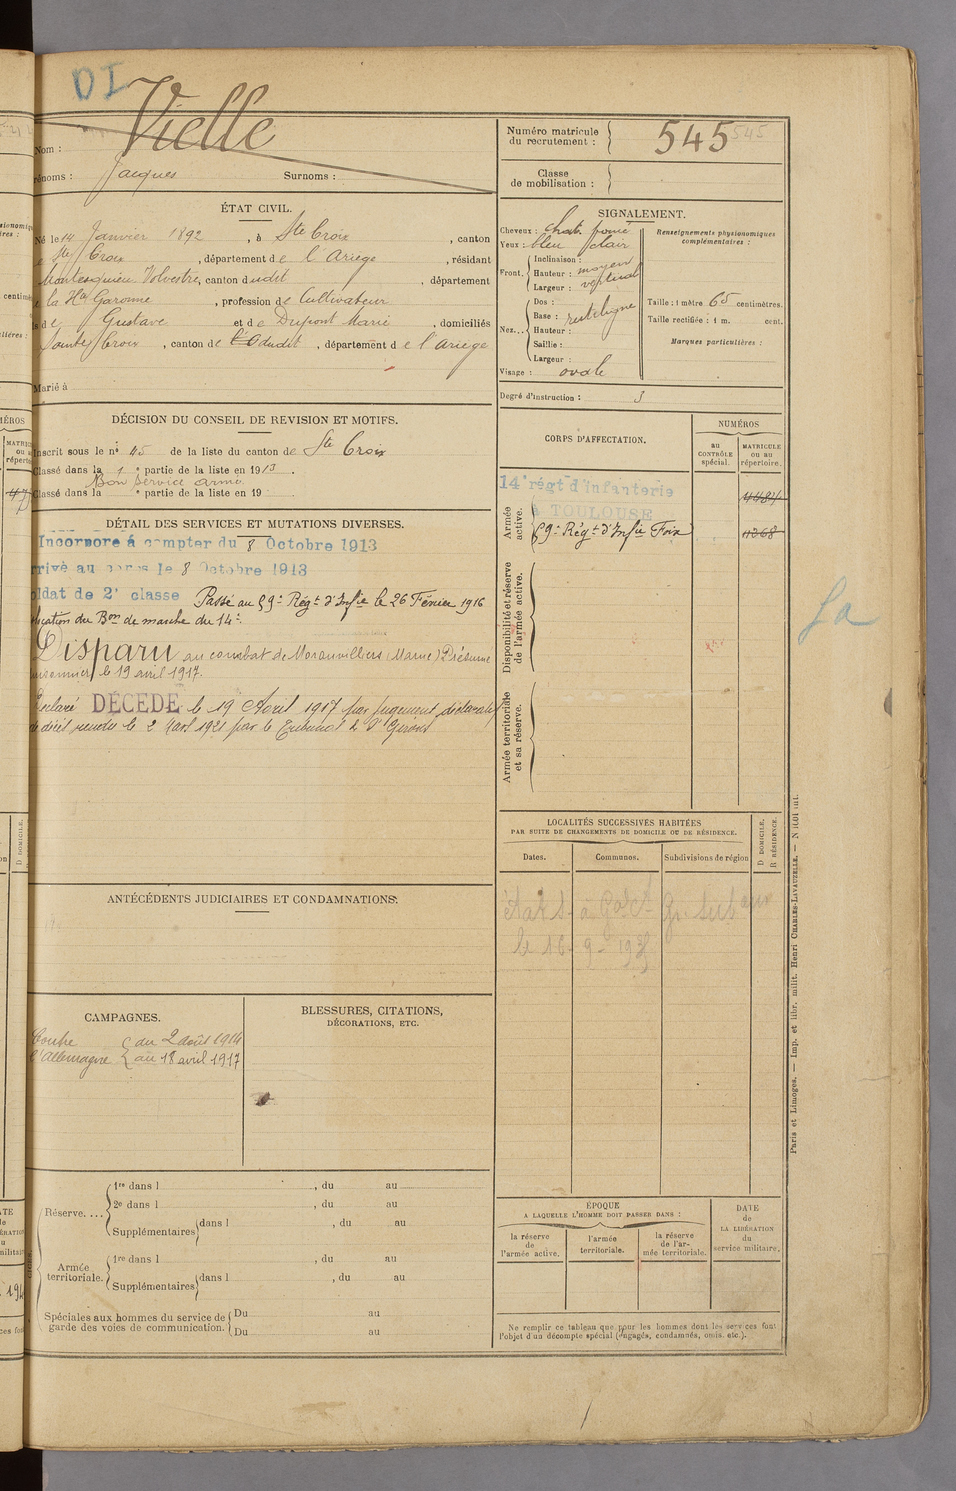 DI
Vielle
Nom :
Prénoms : Jacques Surnoms :
Numéro matricule du recrutement : 545 545
Classe de mobilisation :
ÉTAT CIVIL.
Né le 14 Janvier 1892, à Ste Croix, canton
Ste Croix, département de l'Ariège, résidant
Montesquieu Volvestre, canton dudit, département
de la Hte Garonne, profession de Cultivateur
de Gustave et de Dupont Marie, domiciliés
Sainte Croix, canton de dudit, département de l'Ariège
Marié à
SIGNALEMENT.
Cheveux : chat. foncé
Yeux : bleu clair
Front. Inclinaison :
Hauteur : moyen
Largeur : vertical
Nez... Dos :
Base : rectiligne
Hauteur :
Saillie :
Largeur :
Visage : ovale
Renseignements physionomiques complémentaires :
Taille : 1 mètre 65 centimètres.
Taille rectifiée : 1 m. cent.
Marques particulières :
Degré d'instruction : 3
DÉCISION DU CONSEIL DE REVISION ET MOTIFS.
Inscrit sous le n° 45 de la liste du canton de Ste Croix
Classé dans la 1e partie de la liste en 1913.
Bon service armé
Classé dans la e partie de la liste en 19
DÉTAIL DES SERVICES ET MUTATIONS DIVERSES.
Incorporé à compter du 8 Octobre 1913
Arrivé au corps le 8 Octobre 1913
Soldat de 2e classe Passé au 59e Régt d'Infie le 26 Février 1916
du Bon de marche du 14e.
Disparu au combat de Moronvilliers (Marne) Présumé
prisonnier le 19 avril 1917.
Déclaré DÉCÉDÉ le 19 Avril 1917 par jugement déclaratif
de décès rendu le 2 1921 par le Tribunal de St Girons
CORPS D'AFFECTATION.
NUMÉROS
au CONTRÔLE spécial.
MATRICULE ou au répertoire.
Armée active.
14e régt d'Infanterie
A TOULOUSE
59e Régt d'Infie Foix
Disponibilité et réserve de l'armée active.
Armée territoriale et sa réserve.
La
LOCALITÉS SUCCESSIVES HABITÉES
PAR SUITE DE CHANGEMENTS DE DOMICILE OU DE RÉSIDENCE.
Dates.
Communes.
Subdivisions de région
D. DOMICILE.
R. RÉSIDENCE.
ANTÉCÉDENTS JUDICIAIRES ET CONDAMNATIONS.
CAMPAGNES.
Contre l'Allemagne du 2 août 1914
au 18 avril 1917
BLESSURES, CITATIONS,
DÉCORATIONS, ETC.
Réserve....
1re dans l , du au
2e dans l , du au
Supplémentaires dans l , du au
Armée territoriale.
1re dans l , du au
Supplémentaires dans l , du au
Spéciales aux hommes du service de garde des voies de communication.
Du au
Du au
ÉPOQUE
A LAQUELLE L'HOMME DOIT PASSER DANS :
la réserve de l'armée active.
l'armée territoriale.
la réserve de l'armée territoriale.
DATE de LA LIBÉRATION du service militaire.
Ne remplir ce tableau que pour les hommes dont les services font
l'objet d'un décompte spécial (engagés, condamnés, omis, etc.).
Paris et Limoges. — Imp. et libr. milit. Henri CHARLES-LAVAUZELLE.